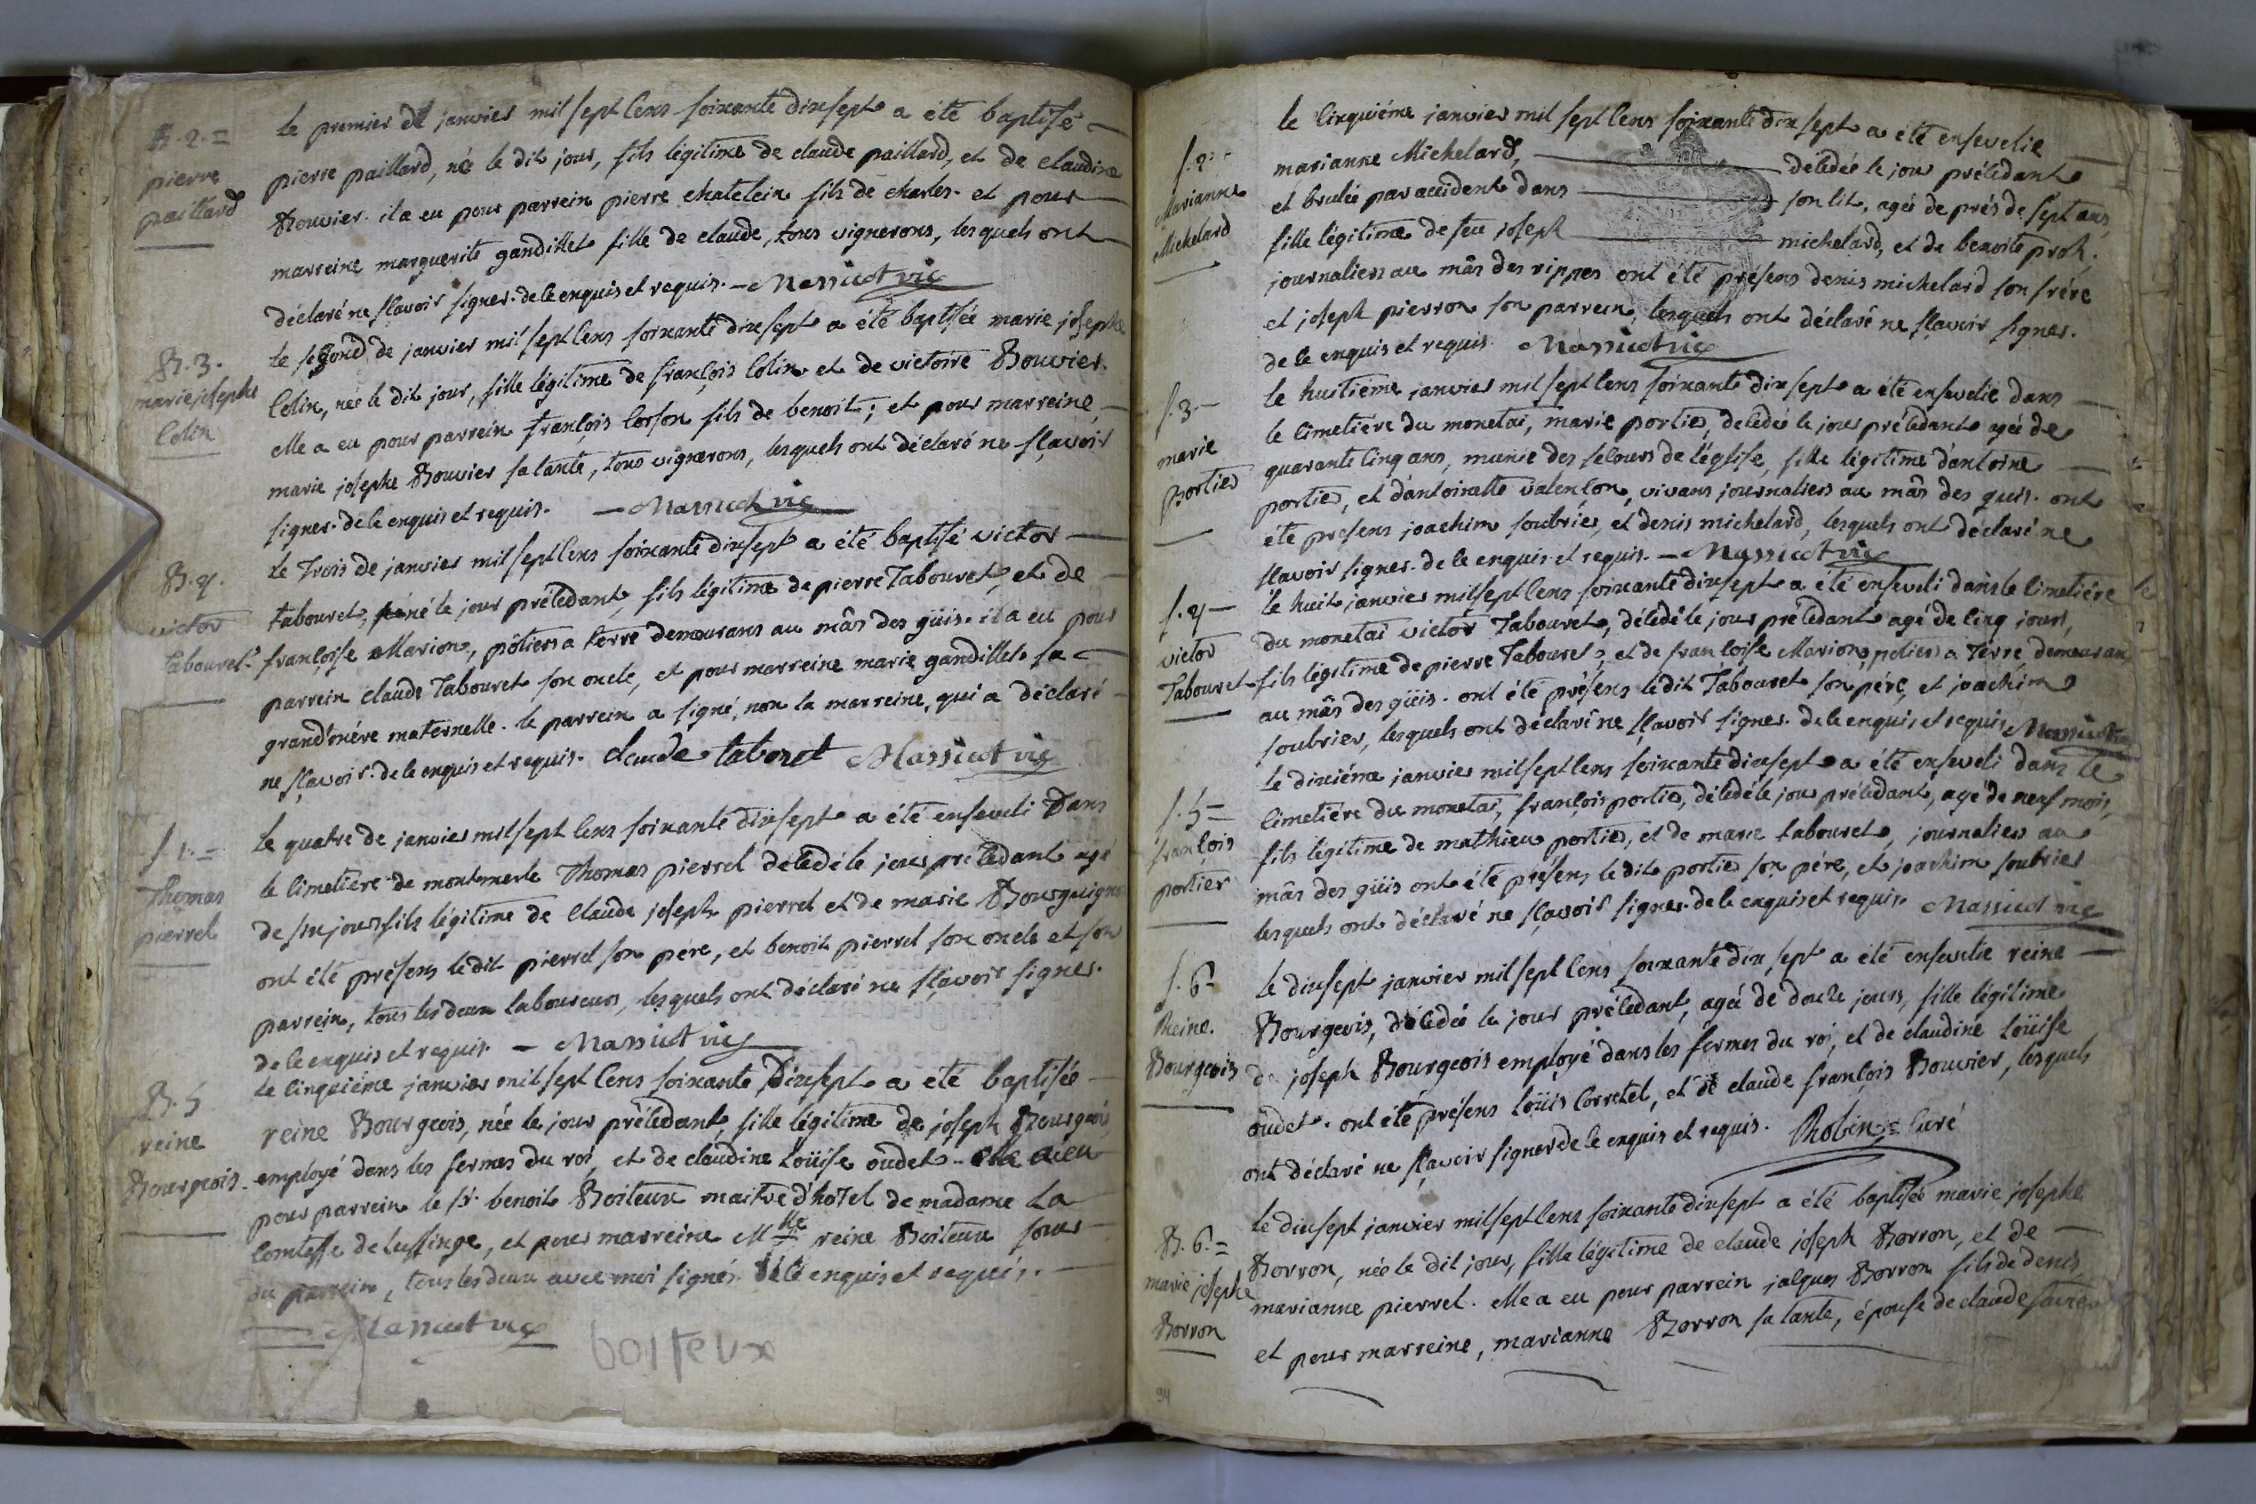 B. 2. =
pierre
paillard
le premier de janvier mil sept cens soixante dixsept a été baptisé
pierre paillard, né le dit jour, fils légitime de claude paillard, et de claudine
Bouvier. il a eu pour parrein pierre chatelein fils de charles. et pour
marreine marguerite gandillet fille de claude, tous vignerons, lesquels ont
déclaré ne sçavoir signer. de ce enquis et requis. Massicot vic
B. 3.
marie josephe
Colin
le segond de janvier mil sept cens soixante dixsept a été baptisée marie josephe
Colin, née le dit jour, fille légitime de françois Colin et de victoire Bouvier.
elle a eu pour parrein françois Corson fils de benoit ; et pour marreine
marie josephe Bouvier sa tante, tous vignerons, lesquels ont déclaré ne sçavoir
signer. de ce enquis et requis. Massicot vic
B. 4.
victor
Tabouret
le trois de janvier mil sept cens soixante dixsept a été baptisé victor
tabouret, né le jour précédant, fils légitime de pierre Tabouret, et de
françoise Marion, pôtiers a terre demeurans au mâs des güis. il a eu pour
parrein claude Tabouret son oncle, et pour marreine marie gandillet sa
grand'mére maternelle. le parrein a signé, non la marreine, qui a déclaré
ne sçavoir. de ce enquis et requis. claude taboret Massicot vic
S 1. =
Thomas
pierrel
le quatre de janvier mil sept cens soixante dixsept a été enseveli dans
le cimetiére de montmerle Thomas pierrel décédé le jour précédant agé
de six jours fils légitime de Claude joseph pierrel et de marie Bourguignon
ont été présens le dit pierrel son pére, et benoit pierrel son oncle et son
parrein, tous les deux laboureurs, lesquels ont déclaré ne sçavoir signer.
de ce enquis et requis. Massicot vic
B. 5
reine
Bourgeois.
le cinquiéme janvier mil sept cens soixante dixsept a été baptisée
reine Bourgeois, née le jour précédant, fille légitime de joseph Bourgeois
employé dans les fermes du roi, et de claudine Loüise oudet. elle a eu
pour parrein le Sr. benoit Boiteux maitre d'hotel de madame La
Comtesse de Lussinge, et pour marreine Mlle reine Boiteux sœur
du parrein, tous les deux avec moi signés. de ce enquis et requis.
Massicot vic
boiteux
S. 2. =
Marianne
Michelard
le cinquiéme janvier mil sept cens soixante dix sept a été ensevelie
marianne Michelard, décédée le jour précédant
et brulée par accident dans son lit, agée de prés de sept ans,
fille légitime de feu joseph michelard, et de benoite prok.
journaliers au mâs des rippes ont été présens denis michelard son frére
et joseph pierron son parrein, lesquels ont déclaré ne sçavoir signer.
de ce enquis et requis. Massicot vic
S. 3. =
marie
portier
le huitiéme janvier mil sept cens soixante dix sept a été ensevelie dans
le cimetiére du monetai, marie portier, décédée le jour précédant agée de
quarante cinq ans, munie des secours de l'église, fille légitime d'antoine
portier, et d'antoinette valençon, vivans journaliers au mâs des guis. ont
été présens joachim soubrier, et denis michelard, lesquels ont déclaré ne
sçavoir signer. de ce enquis et requis. Massicot vic
S. 4 =
victor
Tabouret
le huit janvier mil sept cens soixante dixsept a été enseveli dans le cimetiére
du monetai victor Tabouret, décédé le jour précédant agé de cinq jours,
fils légitime de pierre Tabouret, et de françoise Marion, potiers a Terre demeurans
au mâs des güis. ont été présens le dit Tabouret son pére, et joachim
soubrier, lesquels ont déclaré ne sçavoir signer. de ce enquis et requis Massicot
S. 5 =
françois
portier
le dixiéme janvier mil sept cens soixante dixsept a été enseveli dans le
cimetiére du monetai, françois portier, décédé le jour précédant, agé de neuf mois,
fils légitime de mathieu portier, et de marie tabouret, journaliers au
mâs des güis ont été présens le dit portier son pére, et joachim soubrier
lesquels ont déclaré ne sçavoir signer. de ce enquis et requis. Massicot vic
S. 6 =
Reine.
Bourgeois
le dixsept janvier mil sept cens soixante dix sept a été ensevelie reine
Bourgeois, décédée le jour précédant, agée de douze jours, fille légitime
de joseph Bourgeois employé dans les fermes du roi, et de claudine Loüise
oudet. ont été présens Loüis Corretel, et de claude françois Bouvier, lesquels
ont déclaré ne sçavoir signer de ce enquis et requis. Robin = Curé
B. 6. =
marie josephe
Borron
le dixsept janvier mil sept cens soixante dixsept a été baptisée marie josephe
Borron, née le dit jour, fille légitime de claude joseph Borron, et de
marianne pierrel. elle a eu pour parrein jacques Borron fils de denis
et pour marreine, marianne Borron sa tante, épouse de claude
94